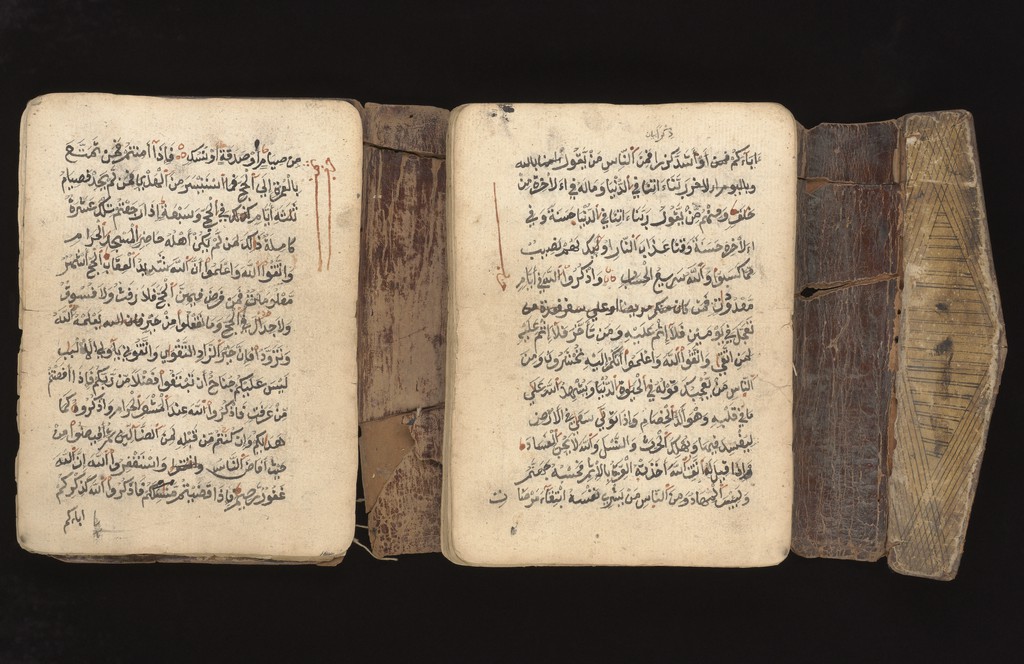 مِن صيامٍ اَوْ صدقةٍ اَوْ نسكٍ فإذا أمنتم فمن تمتع
بالعمرة إلى الحج فما استيسر من الهدي فمن لم يجد فصيام
ثلثة أيام في الحج وسبعة إذا رجعتم تلك عشرة
كاملة ذالك لمن لم يكن أهله حاضر المسجد الحرام
واتقوا الله واعلموا أن الله شديد العقاب الحج أشهر
معلومات فمن فرض فيهن الحج فلا رفث ولا فسوق
ولا جدال في الحج وما تفعلوا من خير يعلمه الله
وتزودوا فإن خير الزاد التقوى واتقون ياولي الالبب
ليس عليكم جناح أن تبتغوا فضلا من ربكم فإذا أفضتم
من عرفت فاذكروا الله عند المشعر الحرام واذكروه كما
هداكم وإن كنتم من قبله لمن الضالين ثم أفيضوا من
حيث أفاض الناس واستغفروا الله إن الله
غفور رحيم فإذا قضيتم مناسككم فاذكروا الله كذكركم
اباءكم
اباءكم أو أشد ذكرا فمن الناس من يقول امنا بالله
وباليوم الاخر ربنا ءاتنا في الدنيا وماله في الاخرة من
خلاف ومنهم من يقول ربنا ءاتنا في الدنيا حسنة وفي
الاخرة حسنة وقنا عذاب النار اوليك لهم نصيب
مما كسبوا والله سريع الحساب واذكروا الله في أيام
معدودت فمن كان على سفر فعدة من
تعجل في يومين فلا إثم عليه ومن تأخر فلا إثم عليه
لمن اتقى واتقوا الله واعلموا أنكم إليه تحشرون ومن
الناس من يعجبك قوله في الحيوة الدنيا ويشهد الله على
ما في قلبه وهو ألد الخصام وإذا تولى سعى في الأرض
ليفسد فيها ويهلك الحرث والنسل والله لا يحب الفساد
وإذا قيل له اتق الله أخذته العزة بالإثم فحسبه جهنم
ولبيس المهاد ومن الناس من يشري نفسه ابتغاء مرضات